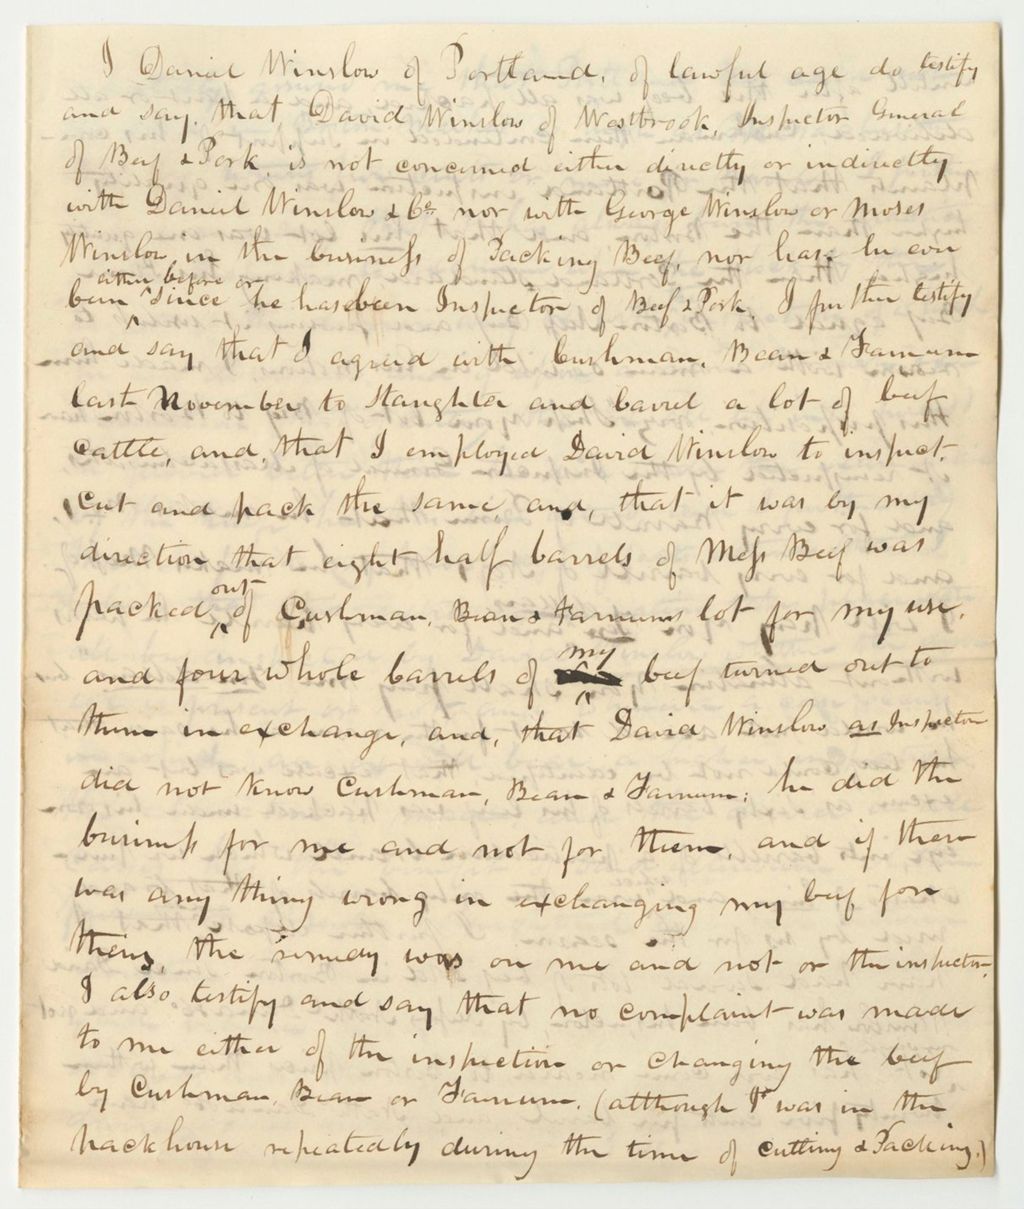 I Daniel Winslow of Portland, of lawful age do testify
and say, that, David Winslow of Westbrook, Inspector General
of Beef & Pork, is not concerned either directly or indirectly
with Daniel Winslow & Co. nor with George Winslow or Moses
Winslow, in the business of Packing Beef, nor has he ever
been either before or since he has been Inspector of Beef & Pork. I further testify
and say that I agreed with Cushman, Bean & Farnum
last November to Slaughter and barrel a lot of beef
Cattle, and, that I employed David Winslow to inspect,
Cut and pack the same, and, that it was by my
direction that eight half barrels of Mess Beef was
packed out of Cushman, Bean & Farnums lot for my use,
and four whole barrels of my beef turned out to
them in exchange, and, that David Winslow as Inspector
did not know Cushman, Bean & Farnum; he did the
business for me and not for them, and if there
was any thing wrong in exchanging my beef for
theirs, the remedy was on me and not on the inspector.
I also testify and say that no complaint was made
to me either of the inspection or changing the beef
by Cushman, Bean or Farnum, (although F was in the
packhouse repeatedly during the time of cutting & Packing.)